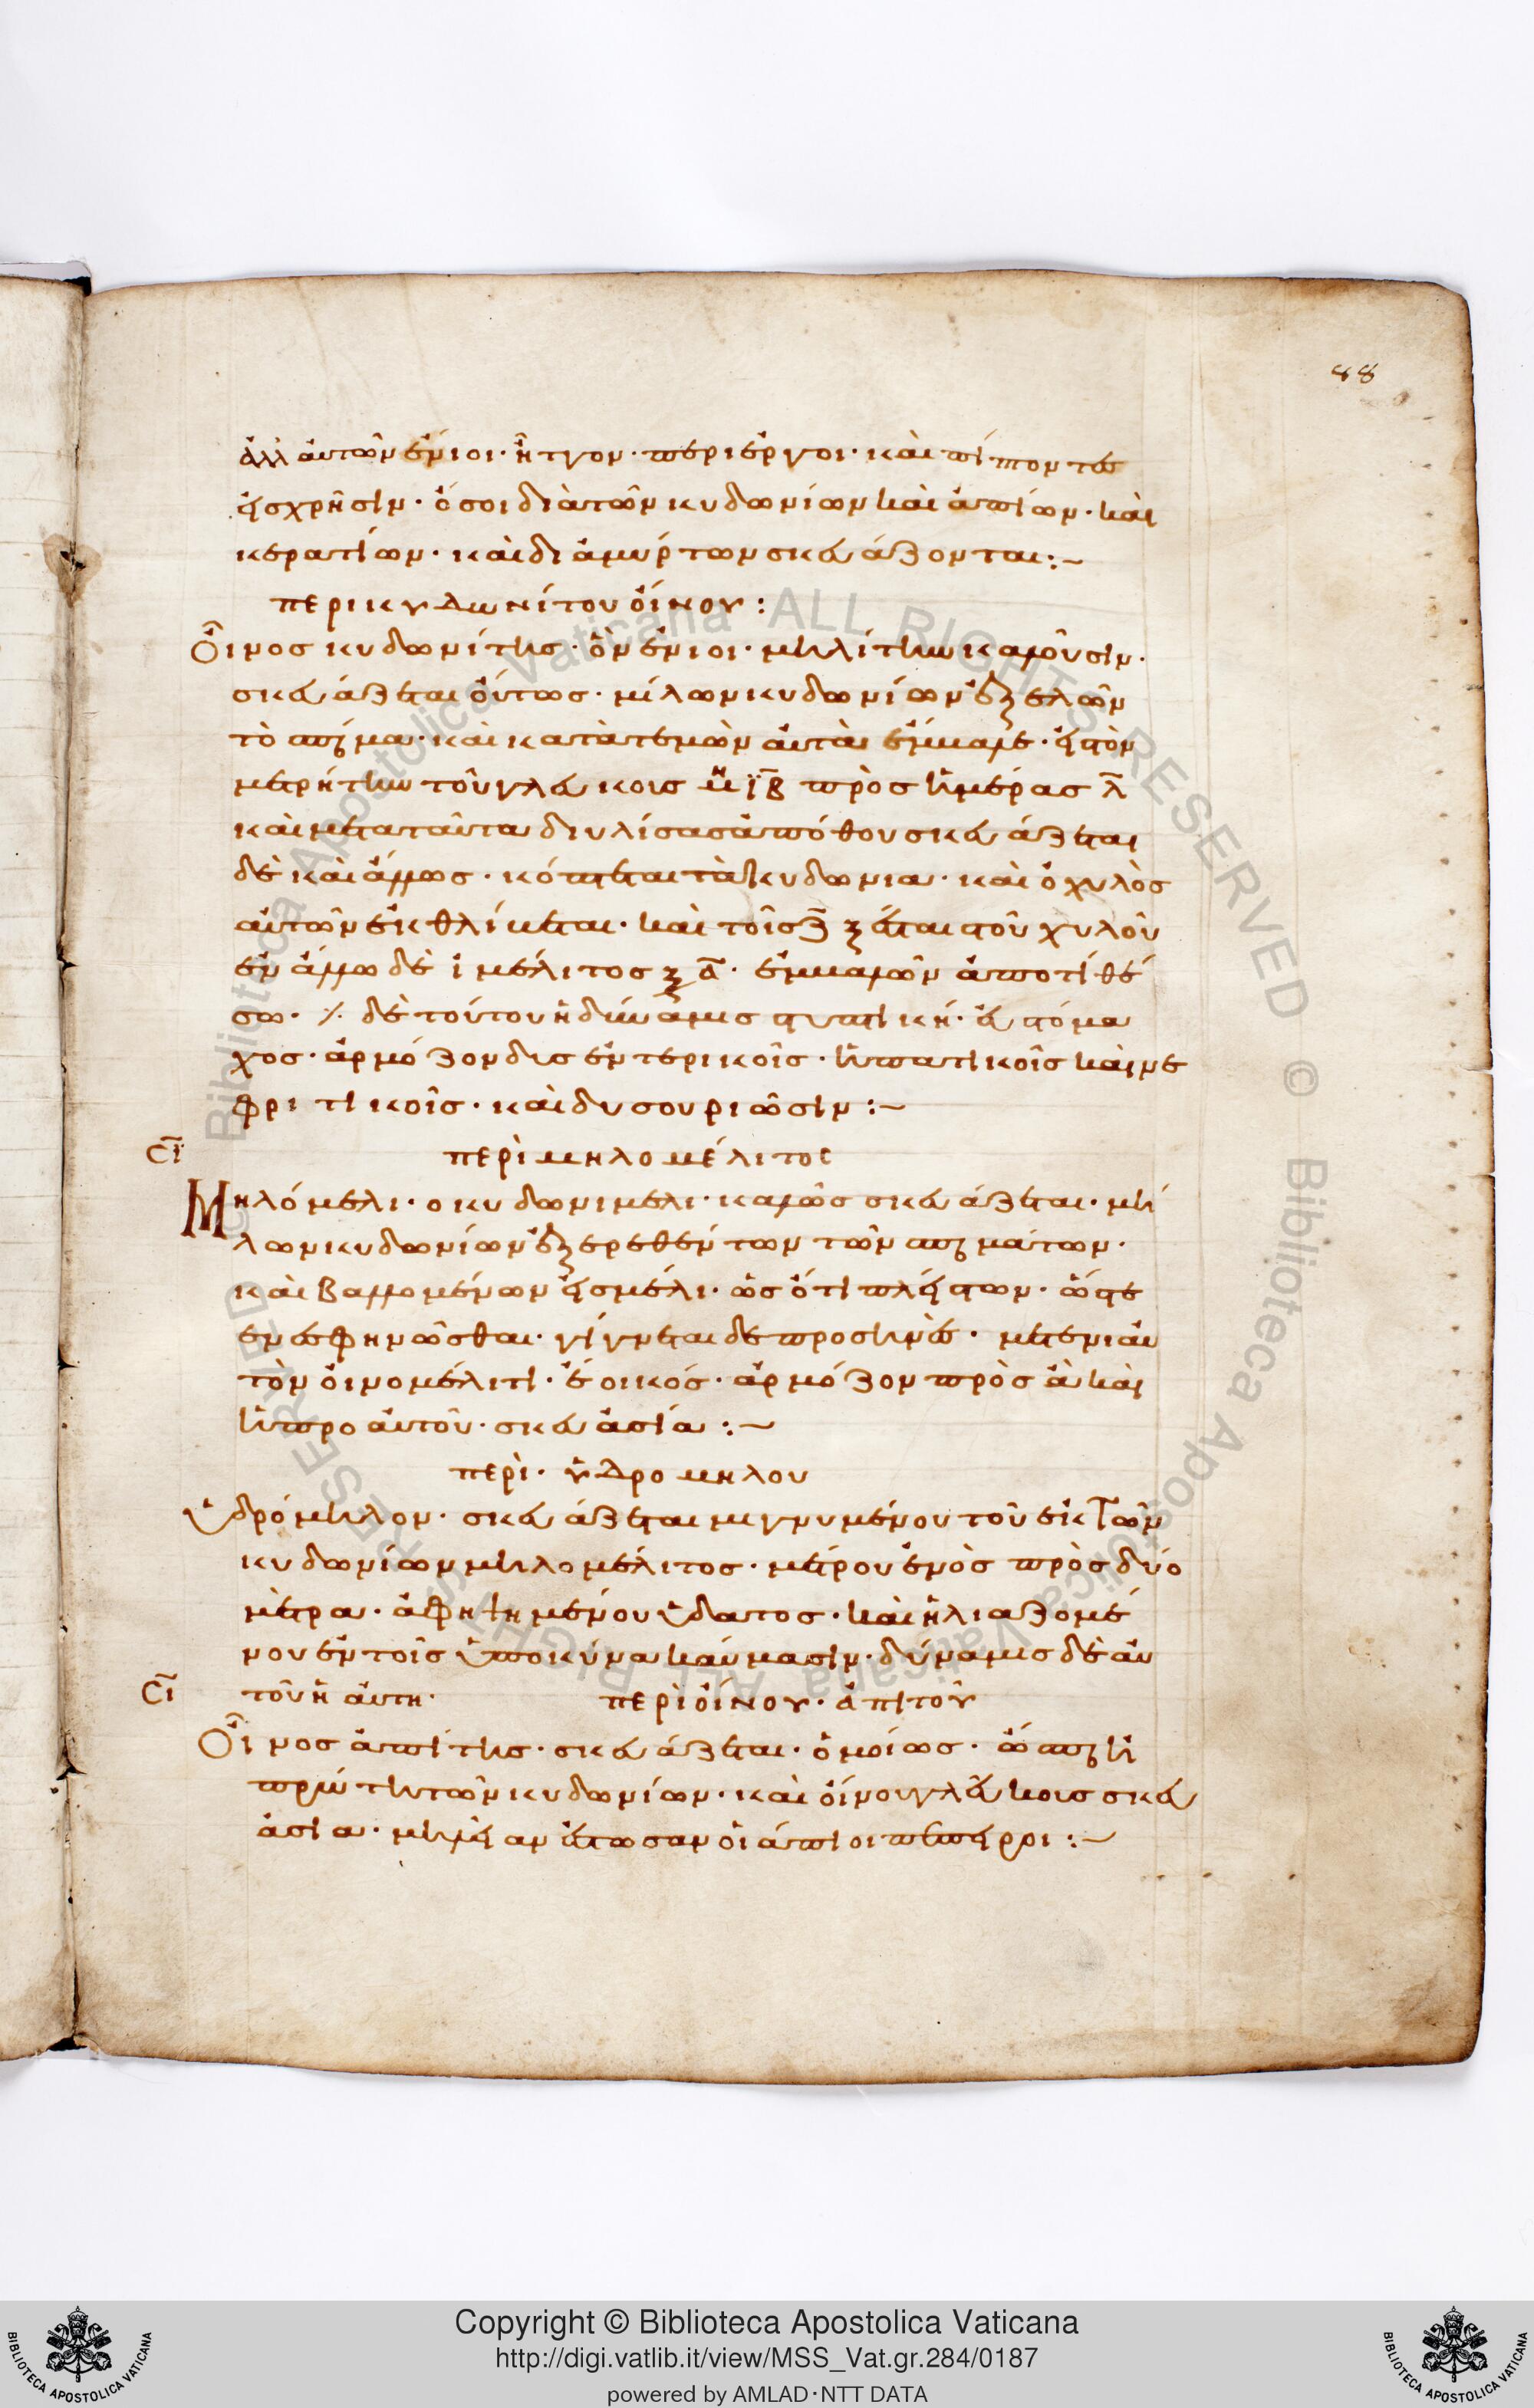 88
ἀλλ' αὐτῶν ἔνιοι· ἧττον· περίεργοι· καὶ πίπτοντες
εἰς χρῆσιν· ὅσοι διὰ τῶν κυδωνίων καὶ ἀπίων· καὶ
κερατίων· καὶ διὰ μύρτων σκευάζονται:~
περι κυδωνίτου οἴνου:
Οἶνος κυδωνίτης· ὃν ἔνιοι· μηλίτην καλοῦσιν·
σκευάζεται οὕτως· μίλων κυδωνίων ἐξελὼν
τὸ σπέρμα· καὶ κατατεμὼν αὐτὰ
μετρητὴν τοῦ γλεύκους ιβ πρὸς ἡμέρας λ
καὶ μετὰ ταῦτα διυλίσας ἀπόθου σκευάζεται
δὲ καὶ ἄλλως· κόπτεται τὰ κυδωνια· καὶ ὁ χυλὸς
αὐτῶν ἐκθλίβεται· καὶ τοῖς τοῦ χυλοῦ
μέλιτος ξ α· ἀποτίθε
σο· δὲ τούτου ἡ δύναμις στυπτικὴ· εὐστόμα
χος· ἁρμόζον δυσεντερικοῖς· ἡπατικοῖς καὶ νε
φριτικοῖς· καὶ δυσουριῶσιν:~
περὶ μηλομέλιτος
Μηλόμελι· ο κυδωνιμελι· καλῶς σκευάζεται· μη
λων κυδωνίων ἐξερεθέντων τῶν σπερμάτων·
καὶ βαλλομένων εἰς μέλι· ὡς ὅτι πλείστων· ὥστε
ενεσφηνῶσθαι· γίγνεται δε προσηνὲς· μετ ενιαυ
τὸν οἰνομέλιτι· ἐοικός· ἁρμόζον πρὸς ἃ καὶ
ἡ προ αὐτοῦ· σκευασία:~
περὶ· ὑδρομηλου
Ὑδρόμηλον· σκευάζεται μιγνυμένου τοῦ ἐκ τῶν
κυδωνίων μηλομέλιτος· μέτρου ἑνὸς πρὸς δύο
μέτρα· ἀφηψημένου ὕδατος· καὶ ἡλιαζομέ
νου ἐν τοῖς ὑπο κύνα καύμασιν· δύναμις δὲ αὐ
τοῦ ἡ αὐτη· περὶ οἴνου· ἀπιτοῦ
Οἶνος ἀπίτης· σκευάζεται· ὁμοίως· ὥσπερ ἡ
πρώτη τῶν κυδωνίων· καὶ οἴνου γλεύκους σκευ
ασία· μὴ λείαν ἔστωσαν οἱ ἄπιοι πέπειροι:~
Copyright © Biblioteca Apostolica Vaticana
http://digi.vatlib.it/view/MSS_Vat.gr.284/0187
powered by AMLAD·NTT DATA